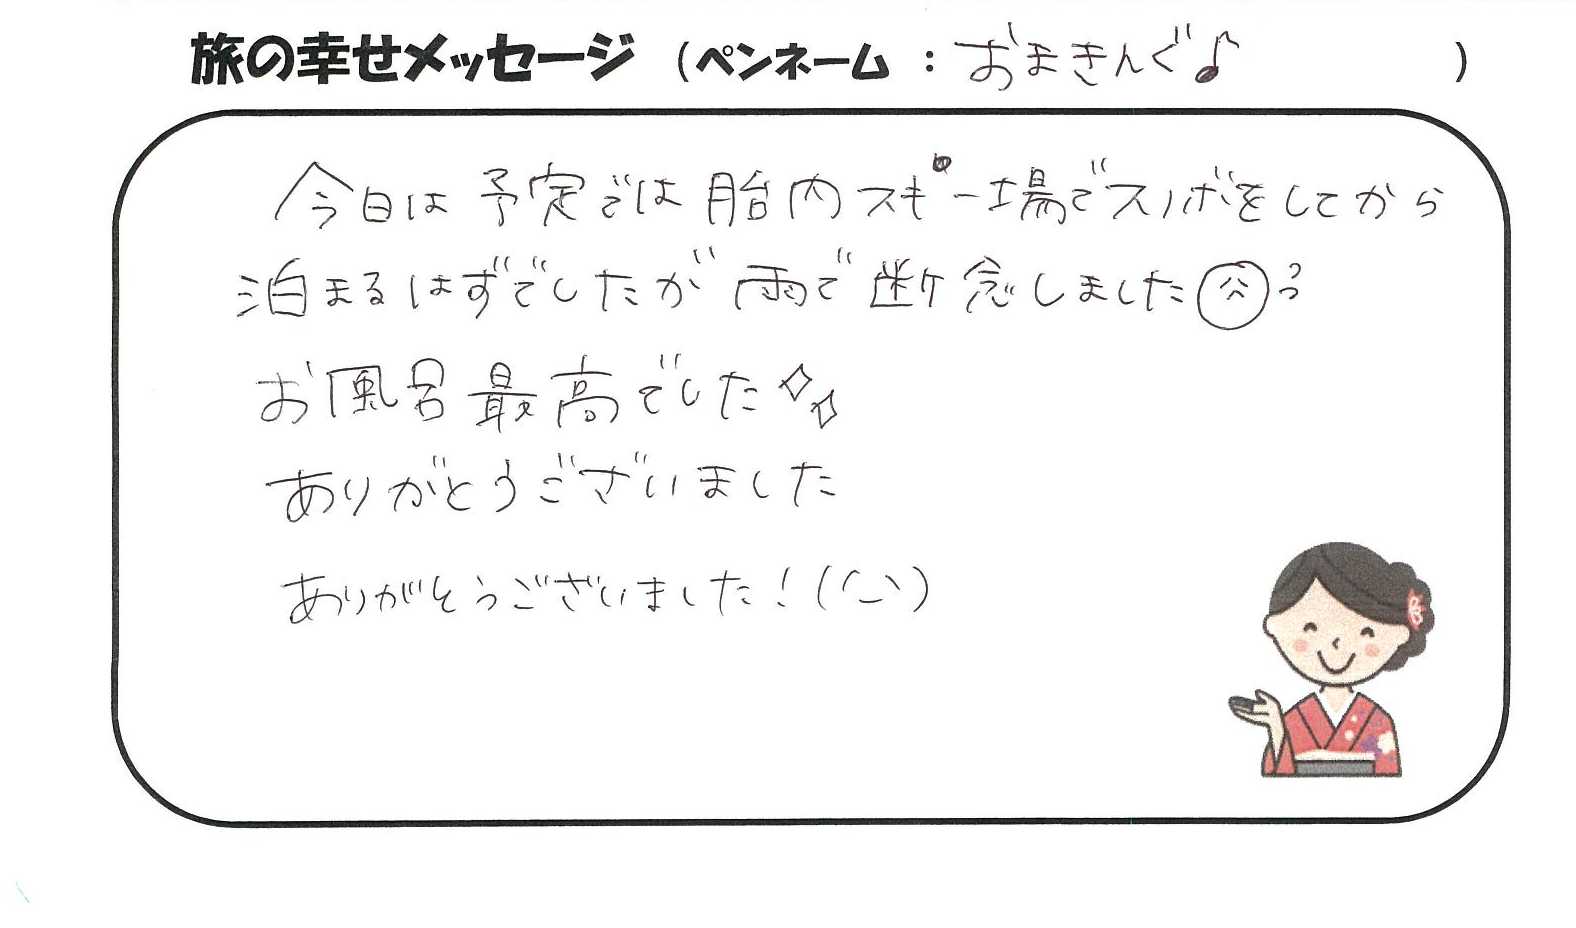 旅の幸せメッセージ (ペンネーム : おまきんぐ♪ )
今日は予定では胎内スキー場でスノボをしてから
泊まるはずでしたが雨で断念しました
お風呂最高でした
ありがとうございました
ありがとうございました!(^_^)